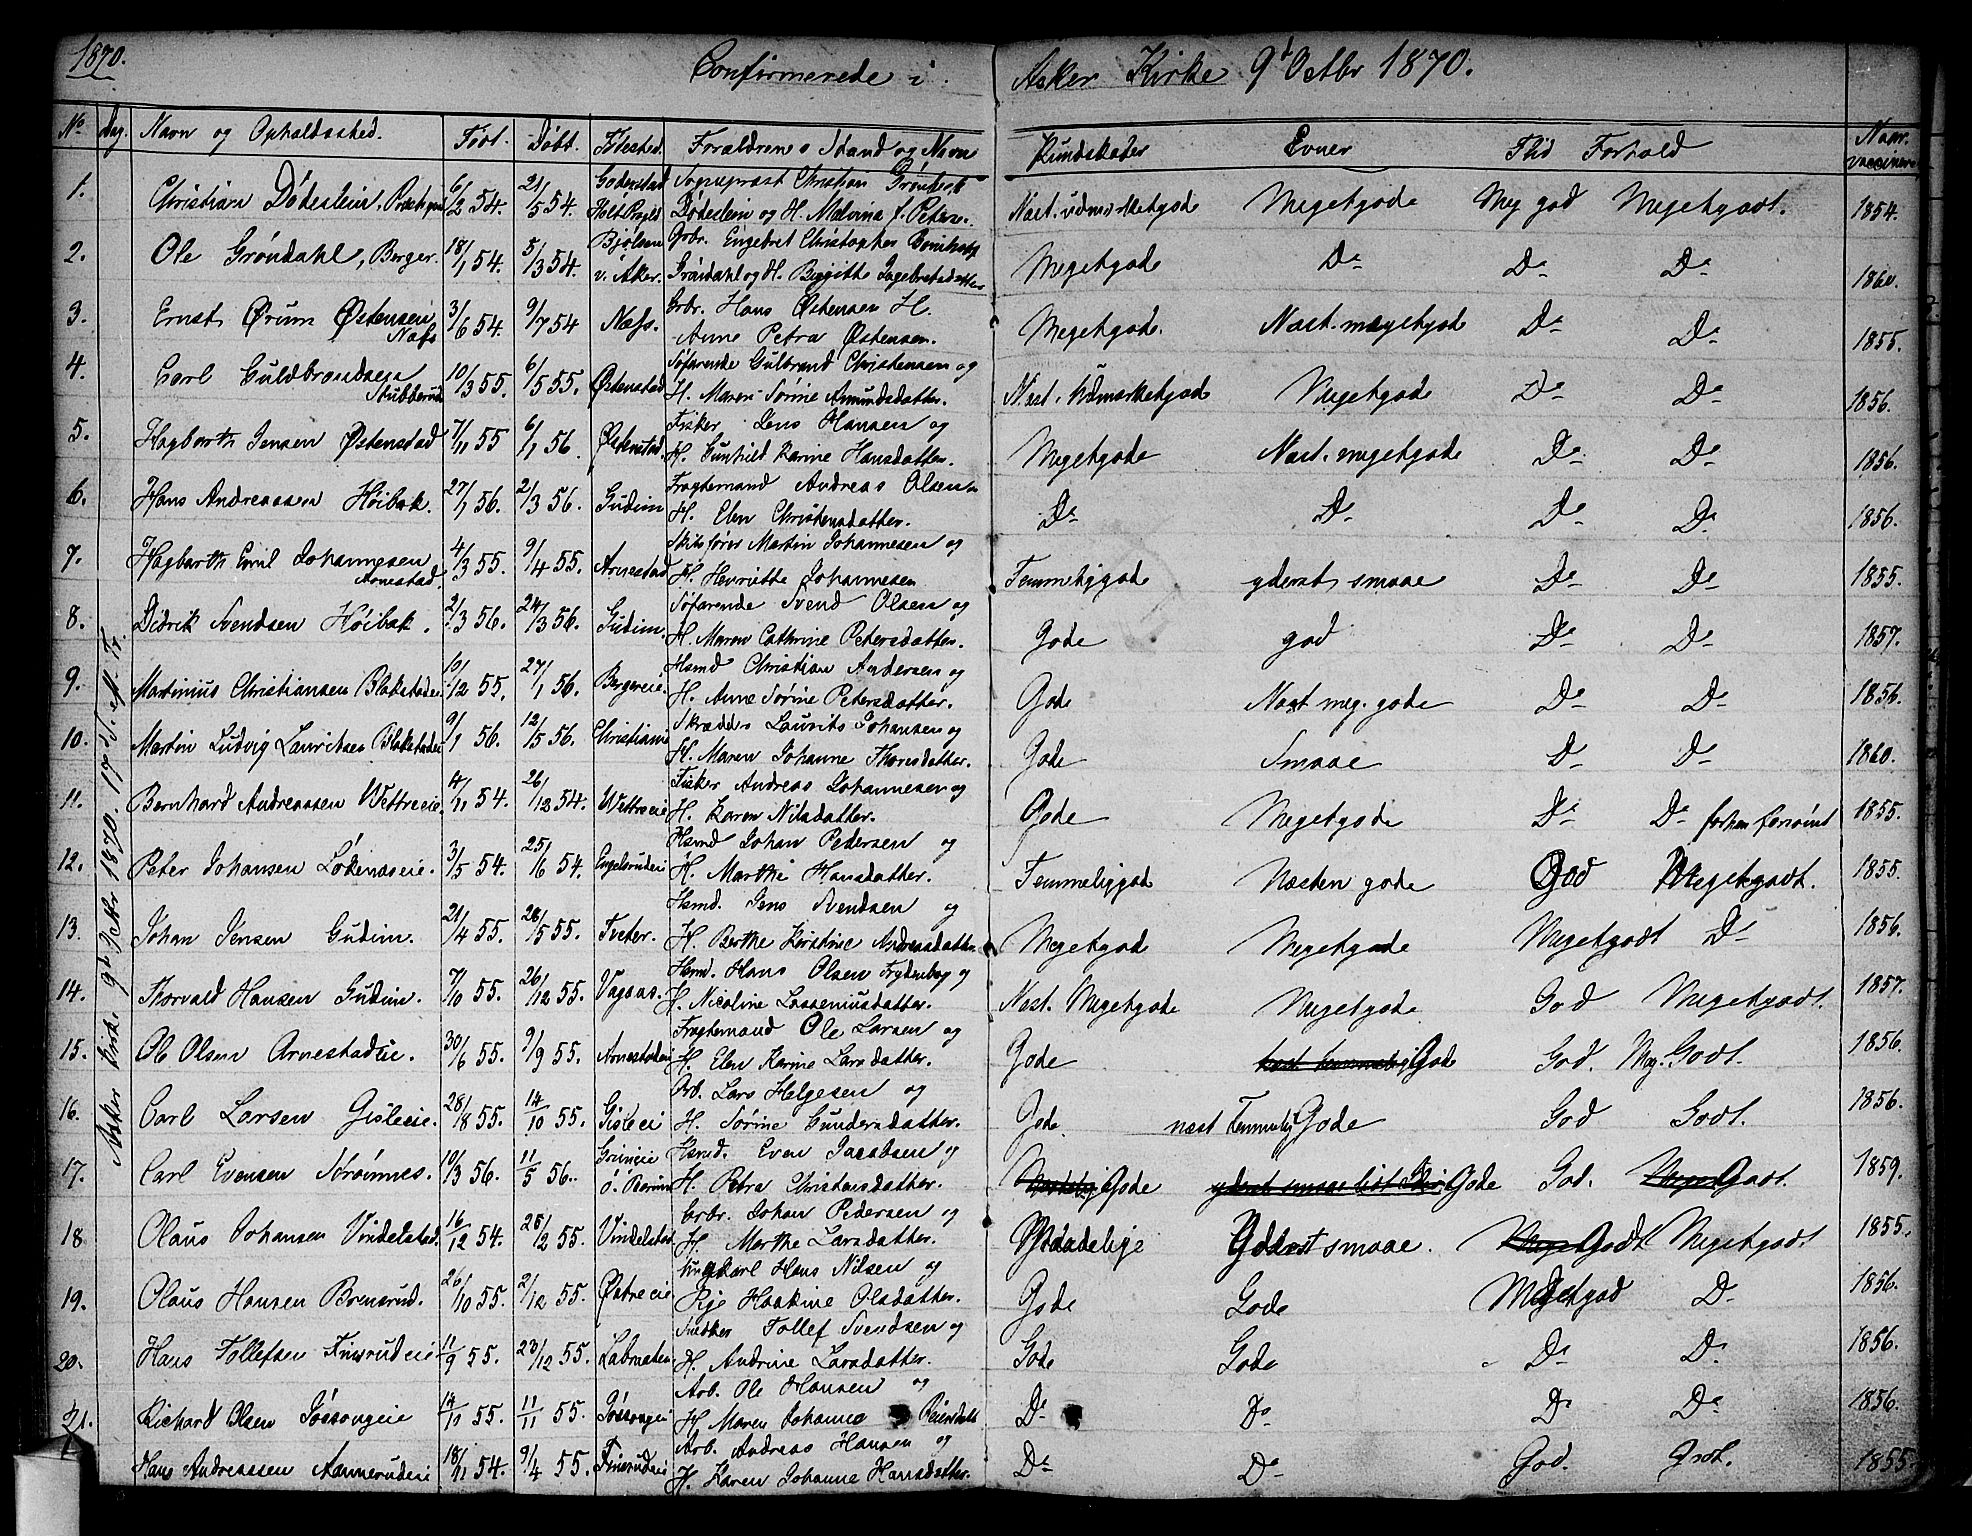 1870.
Confirmerede i Asker Kirke 9d Octbr 1870.
No Dag. Navn og Opholdssted. Født. Døbt. Fødested. Forældrenes Stand og Navn Kundskaber Evner Flid Forhold Naar vaccineret
Asker Kirke 9d Octbr 1870. 17 S. eft. Tr.
1. Christian Dödeslein, 6/2 54. 21/5 54. Sognepræst Christian
Dödeslein og H. Malvina f. Petersen Næst. udmærketgode Megetgode Meg god Megetgodt. 1854.
2. Ole Gröndahl, Berger. 18/1 54. 5/3 54. Bjölsen v. Aker. Grbr. Engebret Christopher
Gröndahl og H. Birgitte Ingebretsdatter Megetgode Do Do Do 1860.
3. Ernst Ørum Østensen Næss 3/6 54. 9/7 54 Næss. Grbr. Hans Østensen H.
Anne Petra Østensen. Megetgode. Næst. megetgode Do Do 1855.
4. Carl Guldbrandsen Stubberud 10/3 55. 6/5 55. Østenstad Søfarende Gulbrand Christensen og
H. Maren Sørine Amundsdatter. Næst. Udmærketgode Megetgode Do Do 1856.
5. Hagbarth Jensen Østenstad 7/11 55 6/1 56. Østenstad. Fisker Jens Hansen og
H. Gunhild Karine Hansdatter. Megetgode Næst. megetgode Do Do 1856.
6. Hans Andreassen Höibak. 27/1 56. 2/3 56. Gudim Fragtemand Andreas Olsen
H. Elen Christensdatter. Do Do Do Do 1856.
7. Hagbarth Emil Johannesen Arnestad. 4/3 55. 9/4 55. Arnestad Skibsfører Martin Johannesen og
H. Henriette Johannesen Temmeliggode yderst smaae Do Do 1855.
8. Didrik Svendsen Höibak. 2/3 56. 24/3 56. Gudim Søfarende Svend Olsen og
H. Maren Cathrine Petersdatter. Gode god Do Do 1857.
9. Martinius Christiansen Blakstadeie 10/12 55. 27/1 56. Bergereie. Hsmd Christian Andersen og
H. Anne Sørine Petersdatter. Gode Næst meg. gode Do Do 1856.
10. Martin Ludvig Lauritsen Blakstadeie 9/1 56. 12/5 56. Christiania Skrædder Laurits Johansen og
H. Maren Johanne Thoresdatter. Gode Smaae Do Do 1860.
11. Bernhard Andreassen Vettreeie. 4/11 54. 26/12 54. Vettreeie Fisker Andreas Johannesen og
H. Karen Nilsdatter. Gode Megetgode Do Do forhen forsömt 1855.
12. Peter Johansen Lökenæseie. 3/5 54. 25/6 54. Engelsrudeie Hsmd Johan Pedersen og
H. Marthe Hansdatter. Temmeliggode Næsten gode God Megetgodt. 1855.
13. Johan Jensen Gudim. 21/4 55. 28/5 55. Tveter. Hsmd. Jens Svendsen og
H. Berthe Kirstine Andreasdatter Megetgode Megetgode Megetgodt Do 1856.
14. Thorvald Hansen Gudim. 7/10 55. 26/12 55. Vagaas. Hsmd. Hans Olsen Frydenberg og
H. Nicoline Lasseniusdatter. Næst. Megetgode Megetgode God Megetgodt. 1857.
15. Ole Olsen Arnestadeie. 30/6 55. 9/9 55. Arnestadeie Fragtemand Ole Larsen og
H. Elen Karine Larsdatter. Gode Gode God. Meg. Godt. 1856.
16. Carl Larsen Gisleeie. 28/8 55. 14/10 55. Gisleeie Arb. Lars Helgesen og
H. Sørine Gundersdatter. Gode. næst Temmelig Gode God Godt. 1856.
17. Carl Evensen Strömnes. 10/3 56. 11/5 56. Grinieie Ö. Bærum Hsmd. Even Jacobsen og
H. Petra Christensdatter. Gode Gode God. Godt. 1859.
18 Olaus Johansen Vindelstad. 16/12 54. 25/2 55. Vindelstad Grbr. Johan Pedersen og
H. Marthe Larsdatter. Maadelige Yderst smaae. Godt Megetgodt 1855.
19. Olaus Hansen Brensrud. 26/10 55. 2/12 55. Østreeie Ungkarl Hans Nilsen og
Pige Haakine Olsdatter. Gode Gode Megetgod Do 1856.
20. Hans Tollefsen Finsrudeie 11/9 55. 23/12 55. Snedker Tollef Svendsen og
H. Andrine Larsdatter. Gode Gode Do Do 1856.
21. Richard Olsen Jössongeie 14/10 55. 11/11 55. Jössongeie Arb. Ole Hansen og
H. Maren Johanne Do Do Do Do 1856.
Hans Andreassen Aamerudeie 18/11 54. 9/4 55. Finsrudeie Arb. Andreas Hansen og
H. Karen Johanne Hansdatter. Do Do God. Godt. 1855.